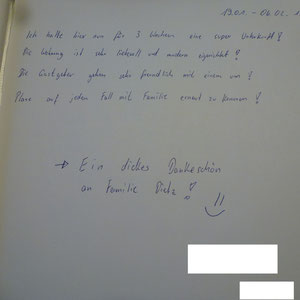 19.01. - 06.02.
Ich hatte hier nun für 3 Wochen eine super Unterkunft!
Die Wohnung ist sehr liebevoll und modern eigerichtet!
Die Gastgeber gehen sehr freundlich mit einem um!
Plane auf jeden Fall mit Familie erneut zu kommen!
→ Ein dickes Dankeschön
an Familie Dietz!